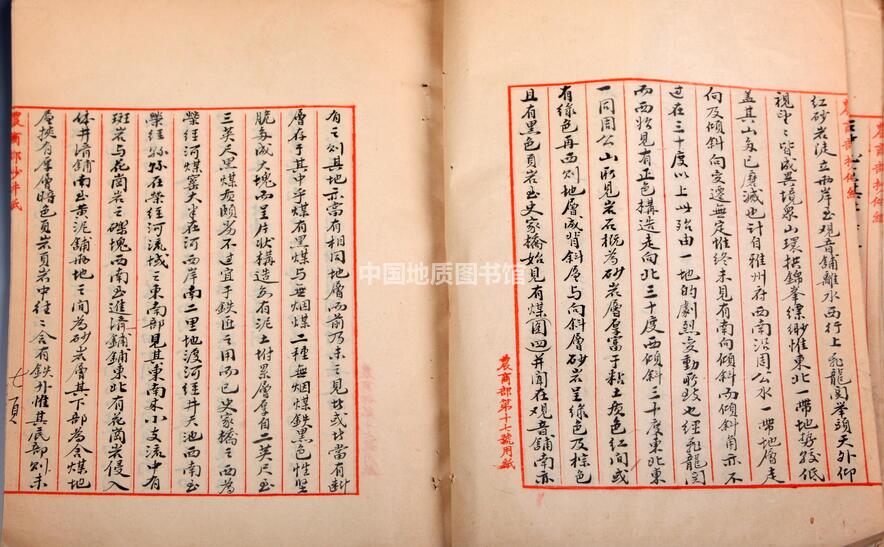 紅砂岩徒立兩岸至觀音舖離水西行上飛龍関峯頭天外仰
視望之皆成異境泉山環拱錦峯縹緲惟東北一帶地勢較低
蓋其山多已磨滅也計自雅州府西南沿周公水一帶地層走
向及傾斜向变遷無定惟終未見有南向傾斜而傾斜角亦不
过在三十度以上此殆由一地的劇烈变動所致也經飛龍関
而西始見有正色構造走向北三十度西傾斜三十度東北東
一同周公山所見岩石概为砂岩層厚富于粘土质色红間或
有綠色再西則地層成背斜層与向斜層砂岩呈綠色及棕色
且有黑色頁岩至史家橋始見有煤図四并聞在观音舖南亦
農商部第十七號用紙
有之則其地亦當有相同地層而前乃未之見故或当有断
層存于其中乎煤有黑煤与無烟煤二種無烟煤鉄黑色性坚
脆多成大塊而呈片狀構造多有泥土附累層厚自二英尺至
三英尺黑煤质頗劣不过宜于鉄匠之用而已史家橋之西为
滎经河煤窰大半在河西岸南二里地渡河经井天池西南至
滎经縣縣在滎经河流域之東南部見其東南来小支流中有
斑岩与花崗岩之礫塊西南至進済舖舖東北有花崗岩侵入
体井済舖南至黄泥舖兩地之間为砂岩層其下部为含煤地
層挾有厚層暗色頁岩頁岩中往往含有鉄外惟其底部則未
七頁
農商部抄件紙
農商部抄件紙
中国地质图书馆